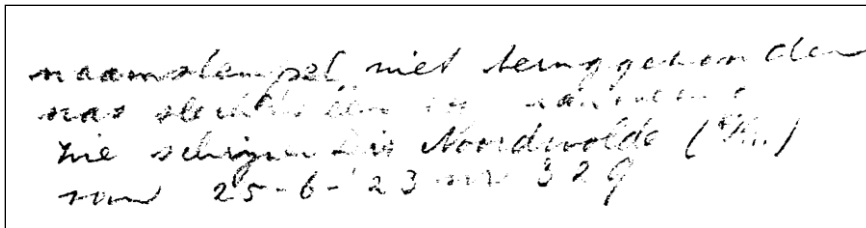 naamstempel niet teruggevonden
was slechts één ex aanwezig
zie schrijven Dir Noordwolde (Fr.)
van 25-6-'23 nr 329